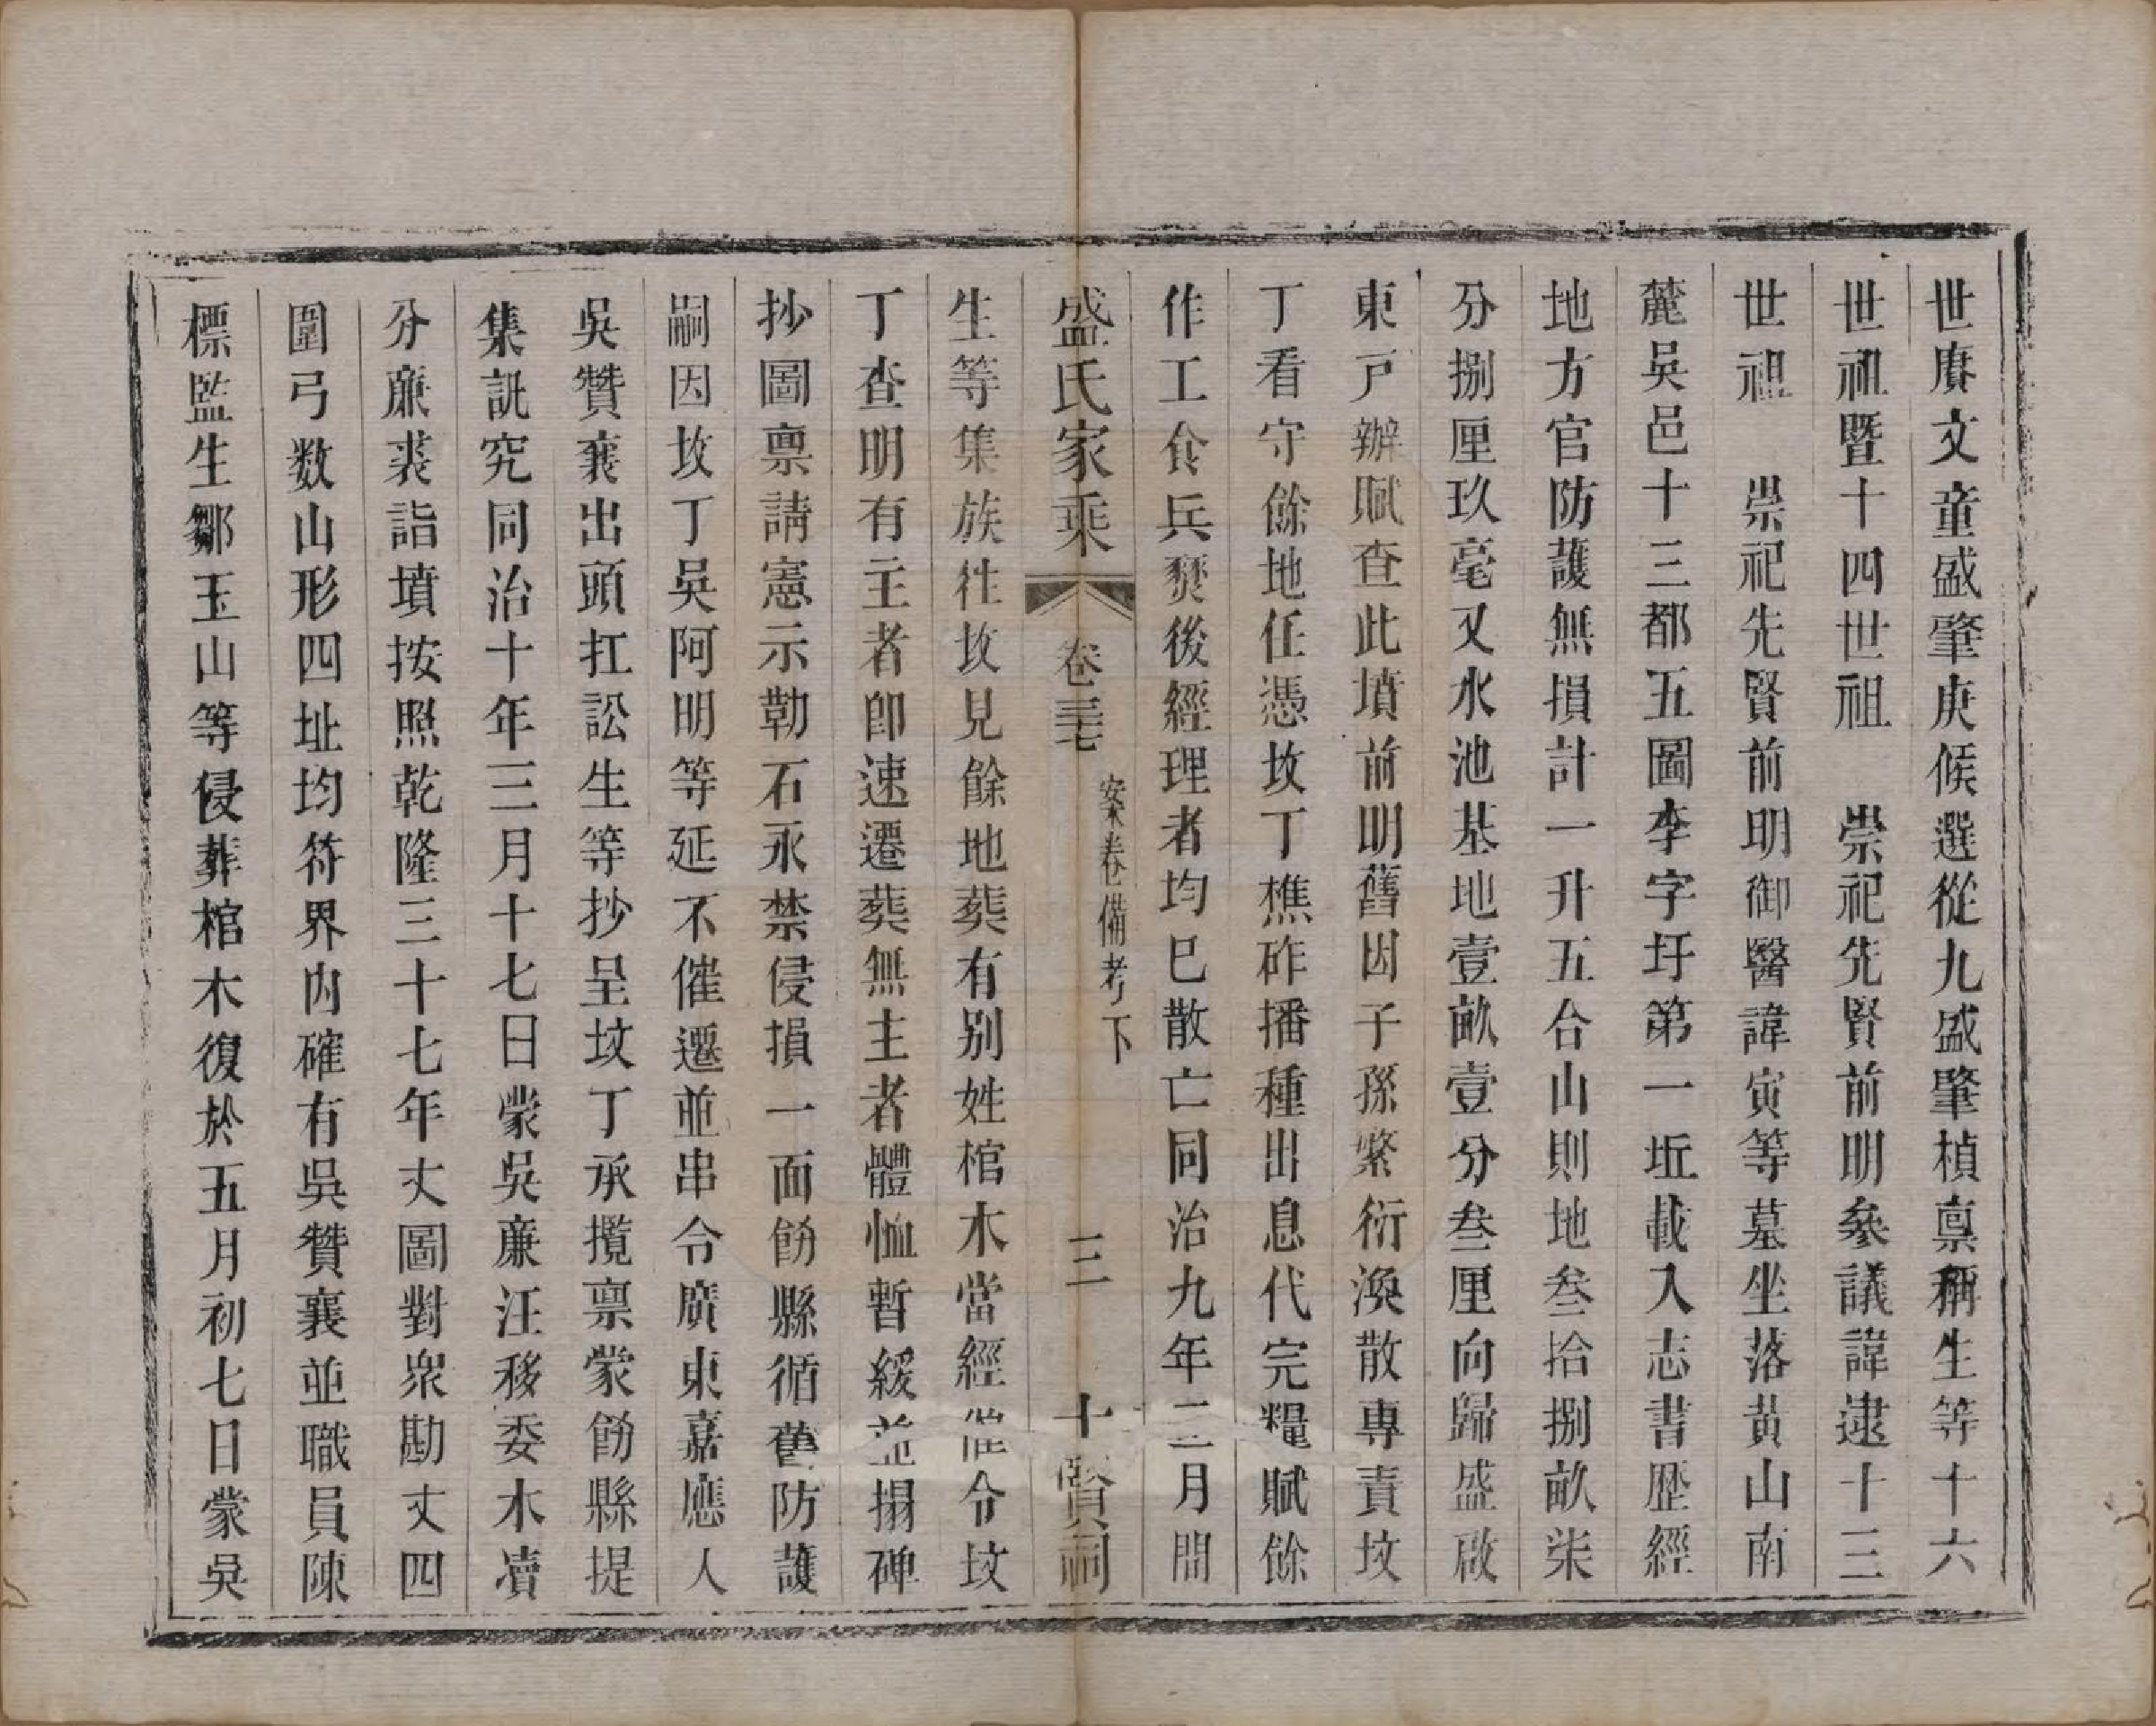 世賡文童盛肇庚候選從九盛肇楨稟稱生等十六
世祖暨十四世祖　崇祀先賢前明參議諱逮十三
世祖　崇祀先賢前明御醫諱寅等墓坐落黄山南
麓吳邑十三都五圖李字圩第一坵載入志書歷經
地方官防護無損計一升五合山則地叁拾捌畝柒
分捌厘玖毫又水池基地壹畝壹分叁厘向歸盛啟
東戸辦賦查此墳前明舊因子孫繁衍渙散專責坟
丁看守餘地任憑坟丁樵砟播種出息代完糧賦餘
作工食兵燹後經理者均已散亡同治九年二月間
盛氏家乘　卷三十七　案卷備考下　三　十賢祠
生等集族往坟見餘地葬有别姓棺木當經催令坟
丁查明有主者卽速遷葬無主者體恤暫緩並搨碑
抄圖稟請憲示勒石永禁侵損一面飭縣循舊防護
嗣因坟丁吳阿明等延不催遷並串令廣東嘉應人
吳贊襄出頭扛訟生等抄呈坟丁承攬稟蒙飭縣提
集訊究同治十年三月十七日蒙吳廉汪移委木瀆
分廉裘詣墳按照乾隆三十七年丈圖對衆勘丈四
圍弓数山形四址均符界内確有吳贊襄並職員陳
標監生鄒玉山等侵葬棺木復於五月初七日蒙吳